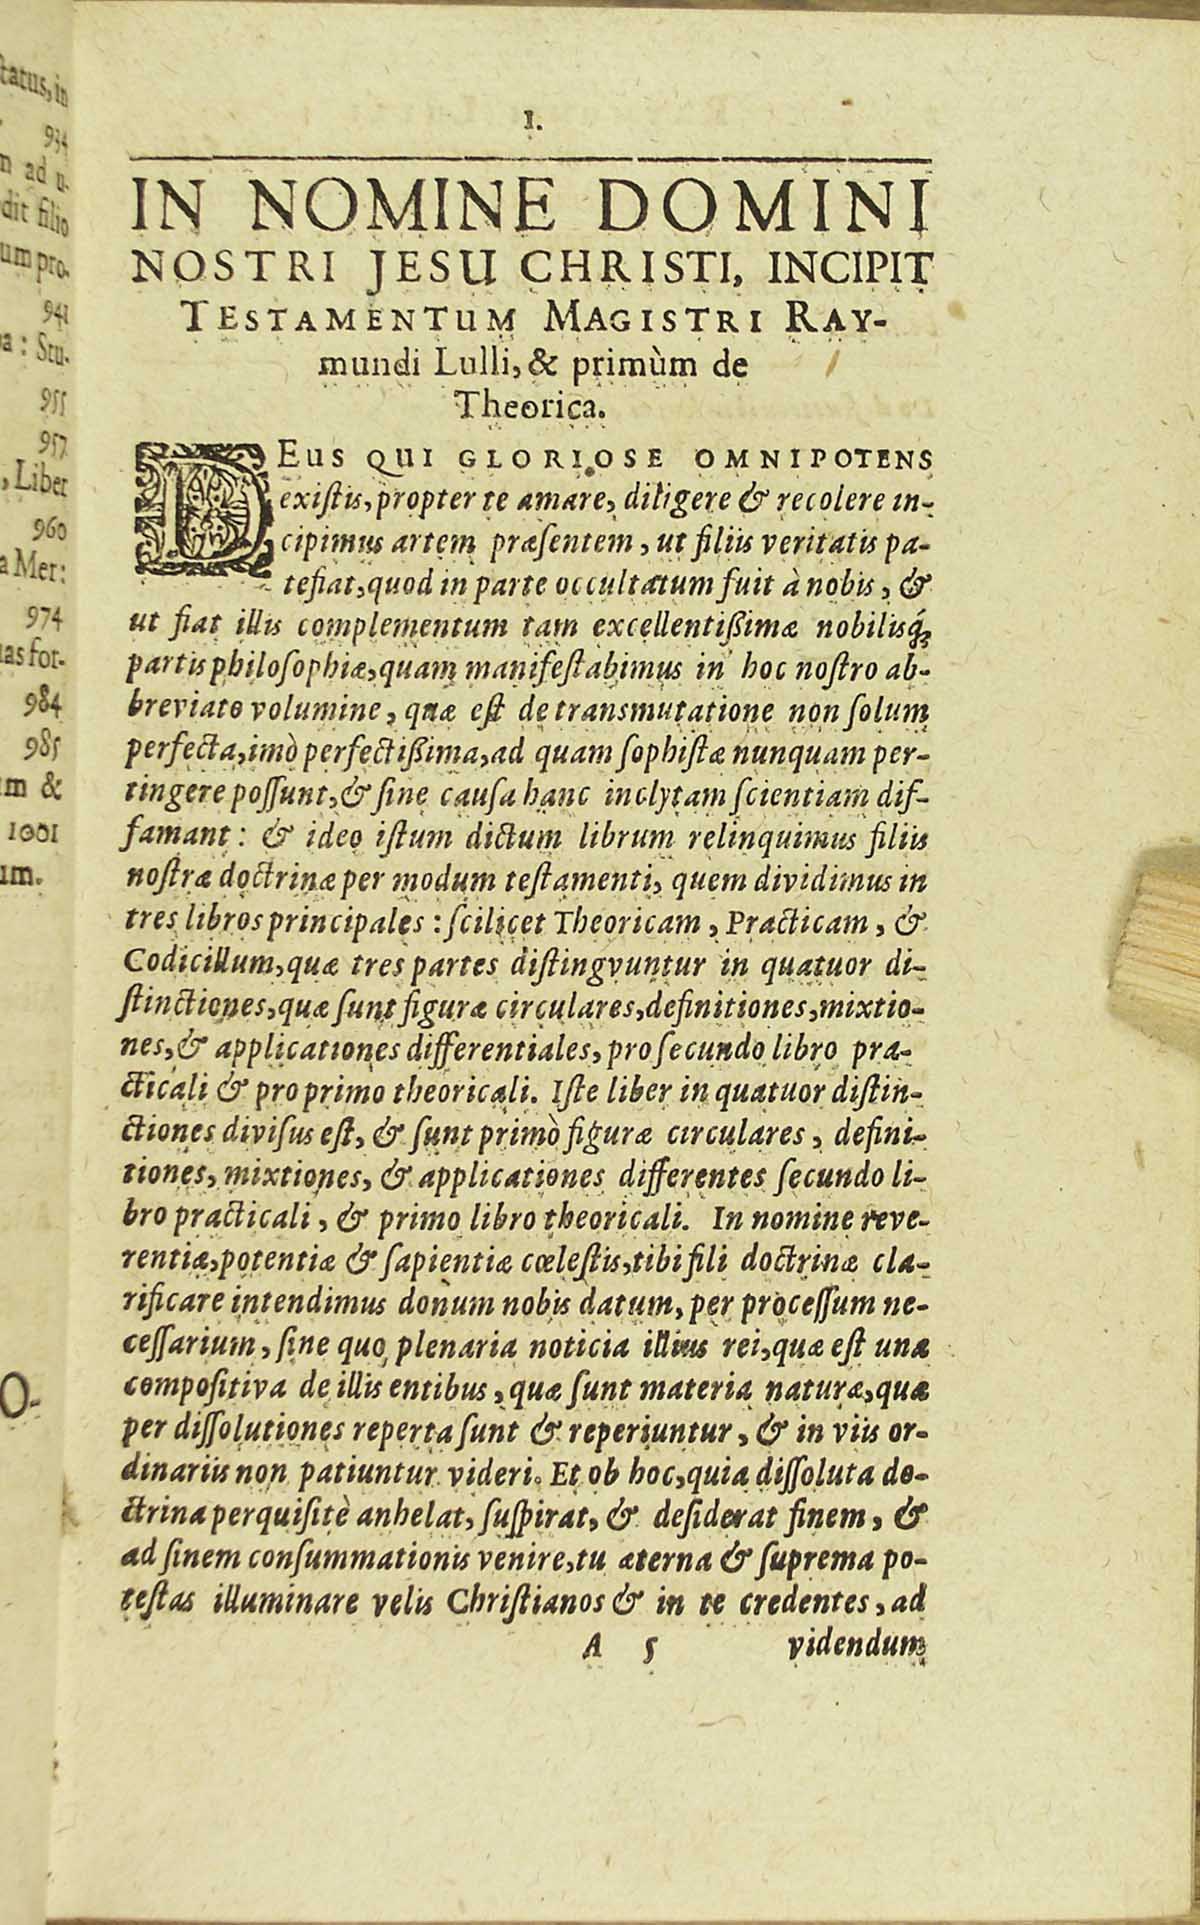 ſtatus, in
934
m ad u-
dit filio
um pro-
941
pa: Stu-
955
957
, Liber
960
a Mer:
974
uas for-
984
985
um &
1001
um.
O-
1.
IN NOMINE DOMINI
NOSTRI JESU CHRISTI, INCIPIT
TESTAMENTUM MAGISTRI RAY-
mundi Lulli, & primùm de
Theorica.
DEUS QUI GLORIOSE OMNIPOTENS
exiſtis, propter te amare, diligere & recolere in-
cipimus artem præſentem, ut filiis veritatis pa-
tefiat, quod in parte occultatum fuit à nobis, &
ut fiat illis complementum tam excellentißimæ nobilisq́;
partis philoſophiæ, quam manifeſtabimus in hoc noſtro ab-
breviato volumine, quæ eſt de transmutatione non ſolum
perfecta, imò perfectißima, ad quam ſophiſtæ nunquam per-
tingere poſſunt, & ſine cauſa hanc inclytam ſcientiam dif-
famant: & ideo iſtum dictum librum relinquimus filiis
noſtræ doctrinæ per modum teſtamenti, quem dividimus in
tres libros principales: ſcilicet Theoricam, Practicam, &
Codicillum, quæ tres partes diſtingvuntur in quatuor di-
ſtinctiones, quæ ſunt figuræ circulares, definitiones, mixtio-
nes, & applicationes differentiales, pro ſecundo libro pra-
cticali & pro primo theoricali. Iſte liber in quatuor diſtin-
ctiones diviſus eſt, & ſunt primò figuræ circulares, defini-
tiones, mixtiones, & applicationes differentes ſecundo li-
bro practicali, & primo libro theoricali. In nomine reve-
rentiæ, potentiæ & ſapientiæ cœleſtis, tibi fili doctrinæ cla-
rificare intendimus donum nobis datum, per proceſſum ne-
ceſſarium, ſine quo plenaria noticia illius rei, quæ eſt una
compoſitiva de illis entibus, quæ ſunt materia naturæ, quæ
per diſſolutiones reperta ſunt & reperiuntur, & in viis or-
dinariis non patiuntur videri. Et ob hoc, quia diſſoluta do-
ctrina perquiſitè anhelat, ſuſpirat, & deſiderat finem, &
ad ſinem conſummationis venire, tu æterna & ſuprema po-
teſtas illuminare velis Chriſtianos & in te credentes, ad
A 5 videndum